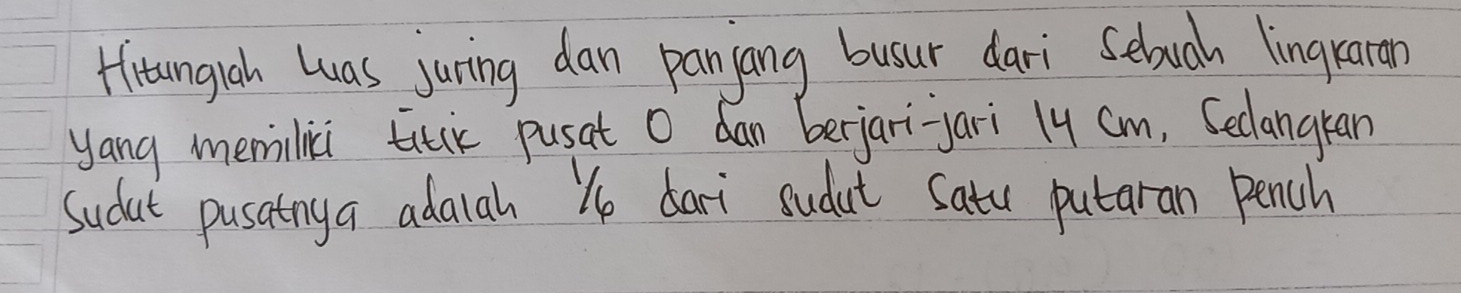 Hitunglah luas juring dan panjang busur dari sebuah lingkaran
yang memiliki titik pusat O dan berjari-jari 14 cm, sedangkan
sudut pusatnya adalah 1/6 dari sudut satu putaran penuh